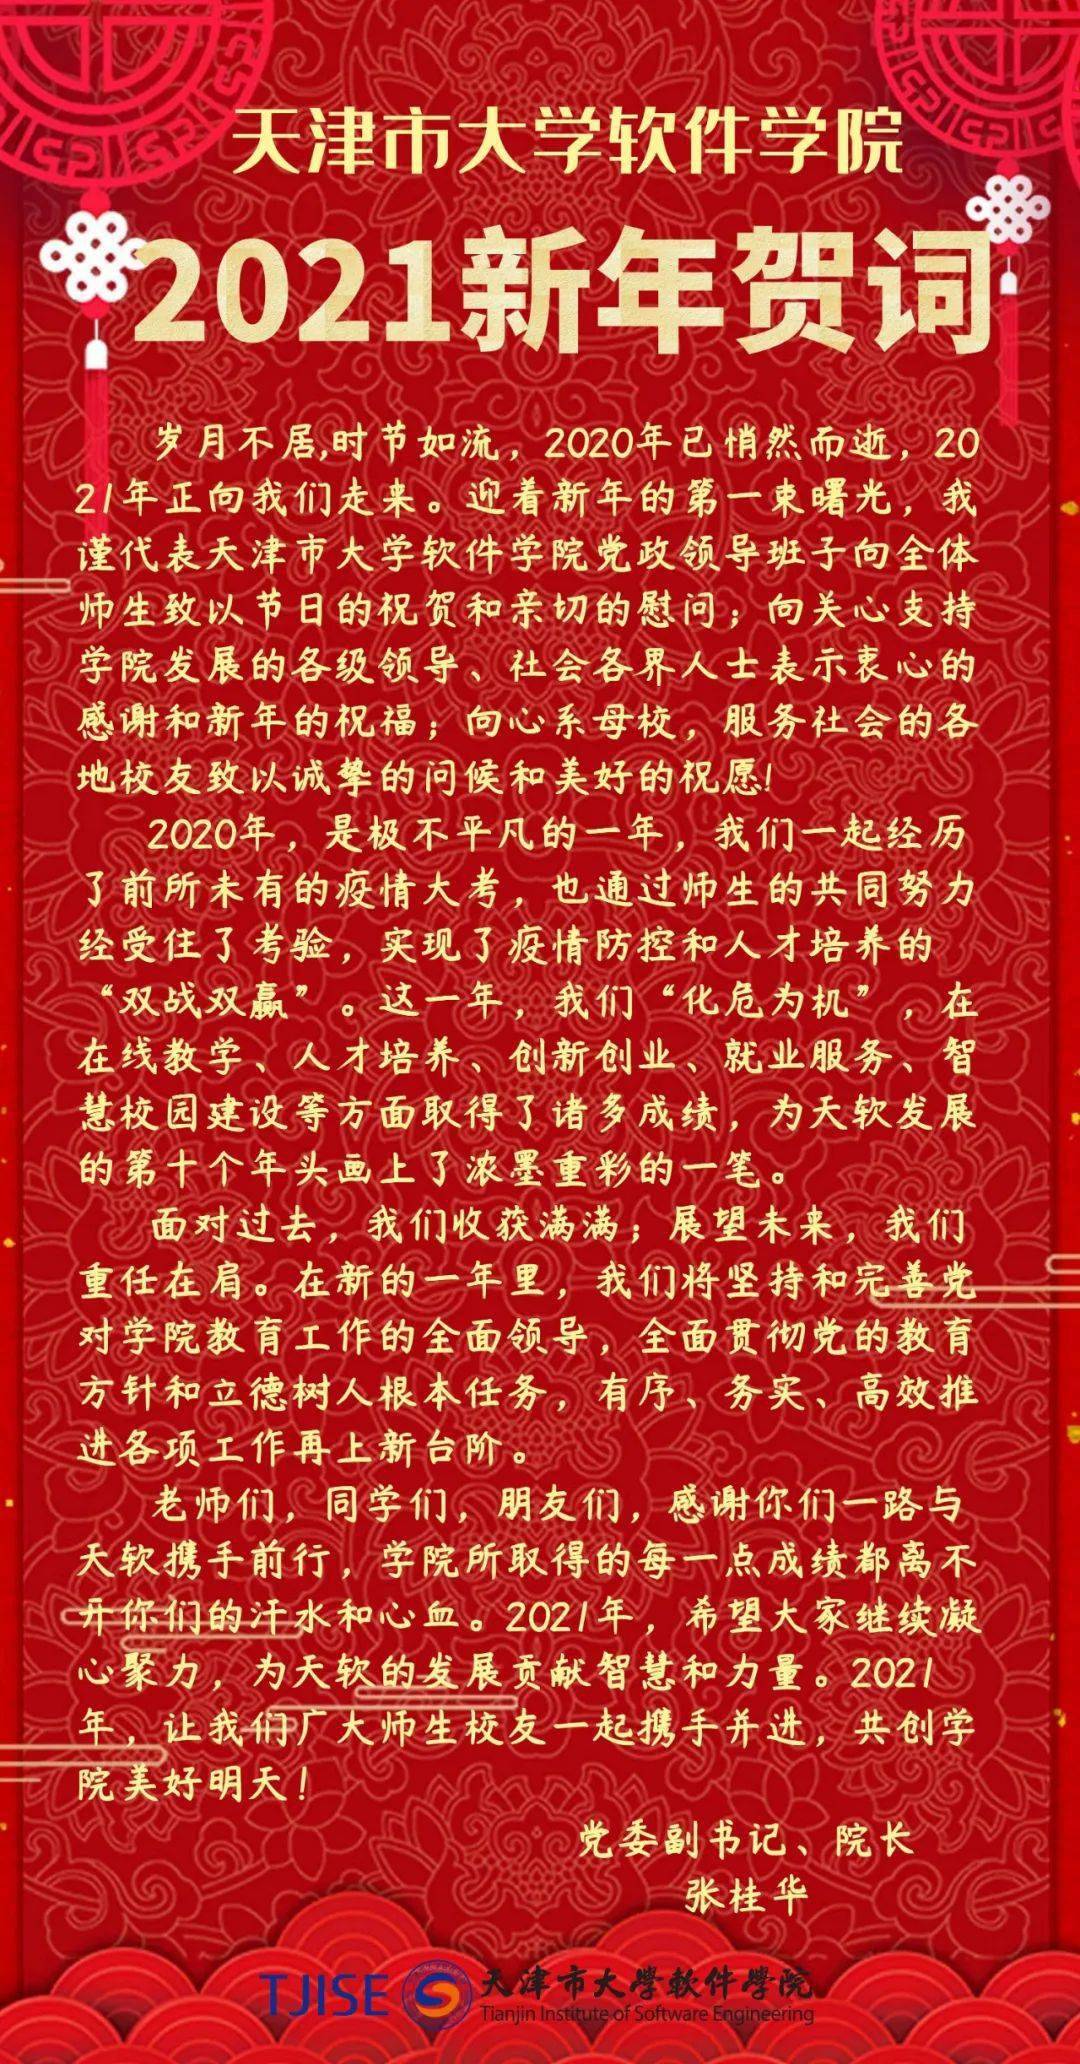 天津市大学软件学院
2021新年贺词
岁月不居,时节如流，2020年已悄然而逝，20
21年正向我们走来。迎着新年的第一束曙光，我
谨代表天津市大学软件学院党政领导班子向全体
师生致以节日的祝贺和亲切的慰问；向关心支持
学院发展的各级领导、社会各界人士表示衷心的
感谢和新年的祝福；向心系母校，服务社会的各
地校友致以诚挚的问候和美好的祝愿!
2020年，是极不平凡的一年，我们一起经历
了前所未有的疫情大考，也通过师生的共同努力
经受住了考验，实现了疫情防控和人才培养的
“双战双赢”。这一年，我们“化危为机”，在
在线教学、人才培养、创新创业、就业服务、智
慧校园建设等方面取得了诸多成绩，为天软发展
的第十个年头画上了浓墨重彩的一笔。
面对过去，我们收获满满；展望未来，我们
重任在肩。在新的一年里，我们将坚持和完善党
对学院教育工作的全面领导，全面贯彻党的教育
方针和立德树人根本任务，有序、务实、高效推
进各项工作再上新台阶。
老师们，同学们，朋友们，感谢你们一路与
天软携手前行，学院所取得的每一点成绩都离不
开你们的汗水和心血。2021年，希望大家继续凝
心聚力，为天软的发展贡献智慧和力量。2021
年，让我们广大师生校友一起携手并进，共创学
院美好明天！
党委副书记、院长
张桂华
TJISE 天津市大學軟件學院
Tianjin Institute of Software Engineering